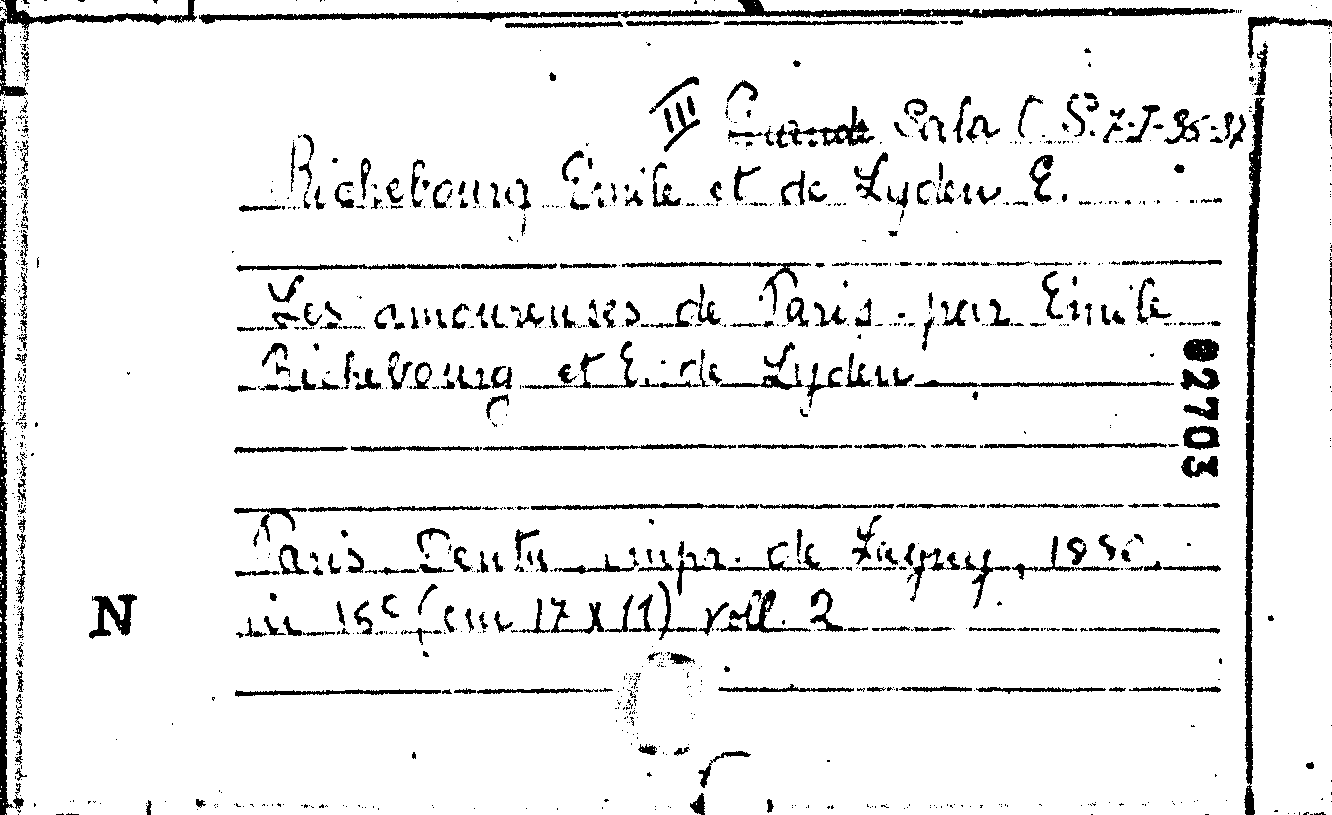 III Sala C. S. 7-I-36-37
Richebourg Emile et de Lyden E.
Les amoureuses de Paris. par Emile
Richebourg et E. de Lyden.
02703
Paris. Dentu. impr. de Lagny,
N
in 18° (cm 17 x 11) voll. 2